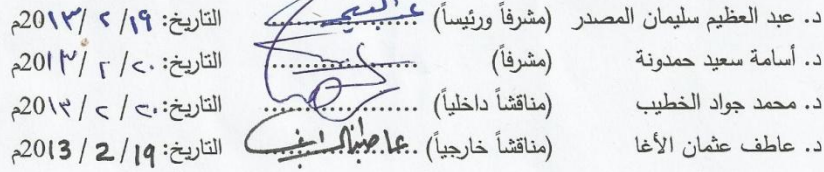 د. عبد العظيم سليمان المصدر (مشرفاً ورئيساً) .................... التاريخ: ١٩/ ٢ / ٢٠١٣م
د. أسامة سعيد حمدونة (مشرفاً) .................... التاريخ: ٢٠/ ٢ / ٢٠١٣م
د. محمد جواد الخطيب (مناقشاً داخلياً) .................... التاريخ: ٢٠/ ٢ / ٢٠١٣م
د. عاطف عثمان الأغا (مناقشاً خارجياً) .................... التاريخ: 19/ 2 / 2013م